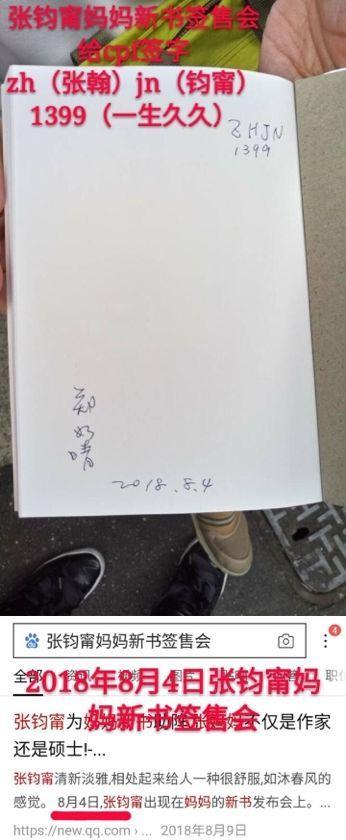 张钧甯妈妈新书签售会
给cpf签字
zh（张翰）jn（钧甯）
1399（一生久久）
ZHJN
1399
郑如晴
2018.8.4
张钧甯妈妈新书签售会
4
全部
2018年8月4日张钧甯妈
妈新书签售会
张钧甯为妈妈
不仅是作家
还是硕士!-...
张钧甯清新淡雅,相处起来给人一种很舒服,如沐春风的
感觉。 8月4日,张钧甯出现在妈妈的新书发布会上。...
https://new.qq.com
2018年8月9日